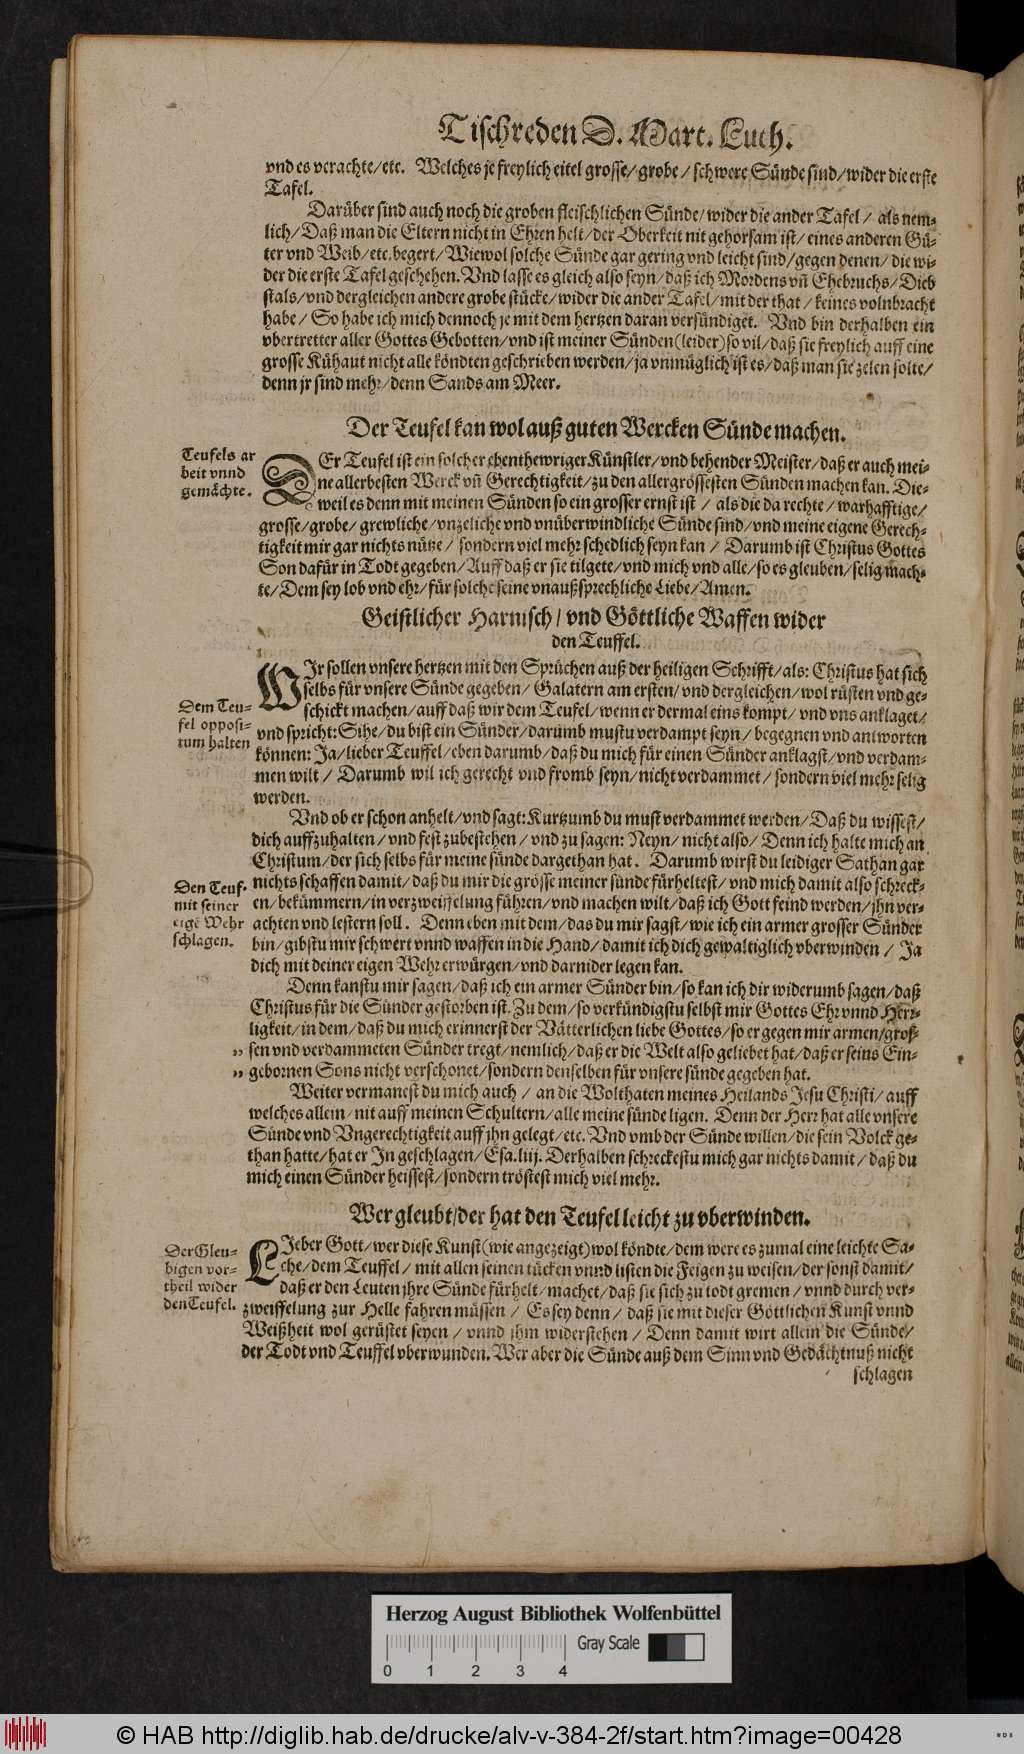 Tischreden D. Mart. Luth.
vnd es verachte/etc. Welches je freylich eitel grosse/grobe/schwere Sünde sind/wider die erste
Tafel.
Darüber sind auch noch die groben fleischlichen Sünde/wider die ander Tafel/ als nem-
lich/Daß man die Eltern nicht in Ehren helt/der Oberkeit nit gehorsam ist/eines anderen Gü-
ter vnd Weib/etc. begert/Wiewol solche Sünde gar gering vnd leicht sind/gegen denen/die wi-
der die erste Tafel geschehen. Vnd lasse es gleich also seyn/daß ich Mordens vñ Ehebruchs/Dieb
stals/vnd dergleichen andere grobe stücke/wider die ander Tafel/mit der that/keines volnbracht
habe/ So habe ich mich dennoch je mit dem hertzen daran versündiget. Vnd bin derhalben ein
vbertretter aller Gottes Gebotten/vnd ist meiner Sünden(leider)so vil/daß sie freylich auff eine
grosse Kühaut nicht alle köndten geschrieben werden/ja vnmüglich ist es/daß man sie zelen solte/
denn jr sind mehr/denn Sands am Meer.
Der Teufel kan wol auß guten Wercken Sünde machen.
Teufels ar
beit vnnd
gemächte.
DEr Teufel ist ein solcher ebenthewriger Künstler/vnd behender Meister/daß er auch mei-
ne allerbesten Werck vñ Gerechtigkeit/zu den allergrössesten Sünden machen kan. Die-
weil es denn mit meinen Sünden so ein grosser ernst ist/ als die da rechte/warhafftige/
grosse/grobe/grewliche/vnzeliche vnd vnüberwindliche Sünde sind/vnd meine eigene Gerech-
tigkeit mir gar nichts nütze/ sondern viel mehr schedlich seyn kan/ Darumb ist Christus Gottes
Son dafür in Todt gegeben/Auff daß er sie tilgete/vnd mich vnd alle/so es gleuben/selig mach-
te/Dem sey lob vnd ehr/für solche seine vnaußsprechliche Liebe/Amen.
Geistlicher Harnisch/ vnd Göttliche Waffen wider
den Teuffel.
WIr sollen vnsere hertzen mit den Sprüchen auß der heiligen Schrifft/als: Christus hat sich
selbs für vnsere Sünde gegeben/ Galatern am ersten/vnd dergleichen/wol rüsten vnd ge-
schickt machen/auff daß wir dem Teufel/wenn er dermal eins kompt/ vnd vns anklaget/
vnd spricht: Sihe/du bist ein Sünder/darumb mustu verdampt seyn/ begegnen vnd antworten
können: Ja/lieber Teuffel/eben darumb/daß du mich für einen Sünder anklagst/vnd verdam-
men wilt/ Darumb wil ich gerecht vnd fromb seyn/nicht verdammet/sondern viel mehr selig
werden.
Dem Teu-
fel opposi-
tum halten
Vnd ob er schon anhelt/vnd sagt: Kurtzumb du must verdammet werden/Daß du wissest/
dich auffzuhalten/vnd fest zubestehen/ vnd zu sagen: Neyn/nicht also/ Denn ich halte mich an
Christum/der sich selbs für meine sünde dargethan hat. Darumb wirst du leidiger Sathan gar
nichts schaffen damit/daß du mir die grösse meiner sünde fürheltest/vnd mich damit also schreck-
en/bekümmern/in verzweiffelung führen/vnd machen wilt/daß ich Gott feind werden/jhn ver-
achten vnd lestern soll. Denn eben mit dem/das du mir sagst/wie ich ein armer grosser Sünder
bin/gibstu mir schwert vnnd waffen in die Hand/damit ich dich gewaltiglich vberwinden/ Ja
dich mit deiner eigen Wehr erwürgen/vnd darnider legen kan.
Den Teuf.
mit seiner
eigē Wehr
schlagen.
Denn kanstu mir sagen/daß ich ein armer Sünder bin/so kan ich dir widerumb sagen/daß
Christus für die Sünder gestorben ist. Zu dem/so verkündigstu selbst mir Gottes Ehr vnnd Herr-
ligkeit/in dem/daß du mich erinnerst der Vätterlichen liebe Gottes/so er gegen mir armen/groß-
„ sen vnd verdammeten Sünder tregt/nemlich/daß er die Welt also geliebet hat/daß er seins Ein-
„ gebornen Sons nicht verschonet/sondern denselben für vnsere sünde gegeben hat.
Weiter vermanest du mich auch/ an die Wolthaten meines Heilands Jesu Christi/auff
welches allein/nit auff meinen Schultern/alle meine sünde ligen. Denn der Herr hat alle vnsere
Sünde vnd Vngerechtigkeit auff jhn gelegt/etc. Vnd vmb der Sünde willen/die sein Volck ge-
than hatte/hat er Jn geschlagen/Esa. liij. Derhalben schreckestu mich gar nichts damit/ daß du
mich einen Sünder heissest/sondern tröstest mich viel mehr.
Wer gleubt/der hat den Teufel leicht zu vberwinden.
Der Gleu-
bigen vor-
theil wider
den Teufel.
LIeber Gott/wer diese Kunst(wie angezeigt)wol köndte/dem were es zumal eine leichte Sa-
che/dem Teuffel/mit allen seinen tücken vnnd listen die Feigen zu weisen/der sonst damit/
daß er den Leuten jhre Sünde fürhelt/machet/daß sie sich zu todt gremen/ vnnd durch ver-
zweiffelung zur Helle fahren müssen/ Es sey denn/ daß sie mit dieser Göttlichen Kunst vnnd
Weißheit wol gerüstet seyen/ vnnd jhm widerstehen/ Denn damit wirt allein die Sünde/
der Todt vnd Teuffel vberwunden. Wer aber die Sünde auß dem Sinn vnd Gedächtnuß nicht
schlagen
Herzog August Bibliothek Wolfenbüttel
Gray Scale
0 1 2 3 4
© HAB http://diglib.hab.de/drucke/alv-v-384-2f/start.htm?image=00428